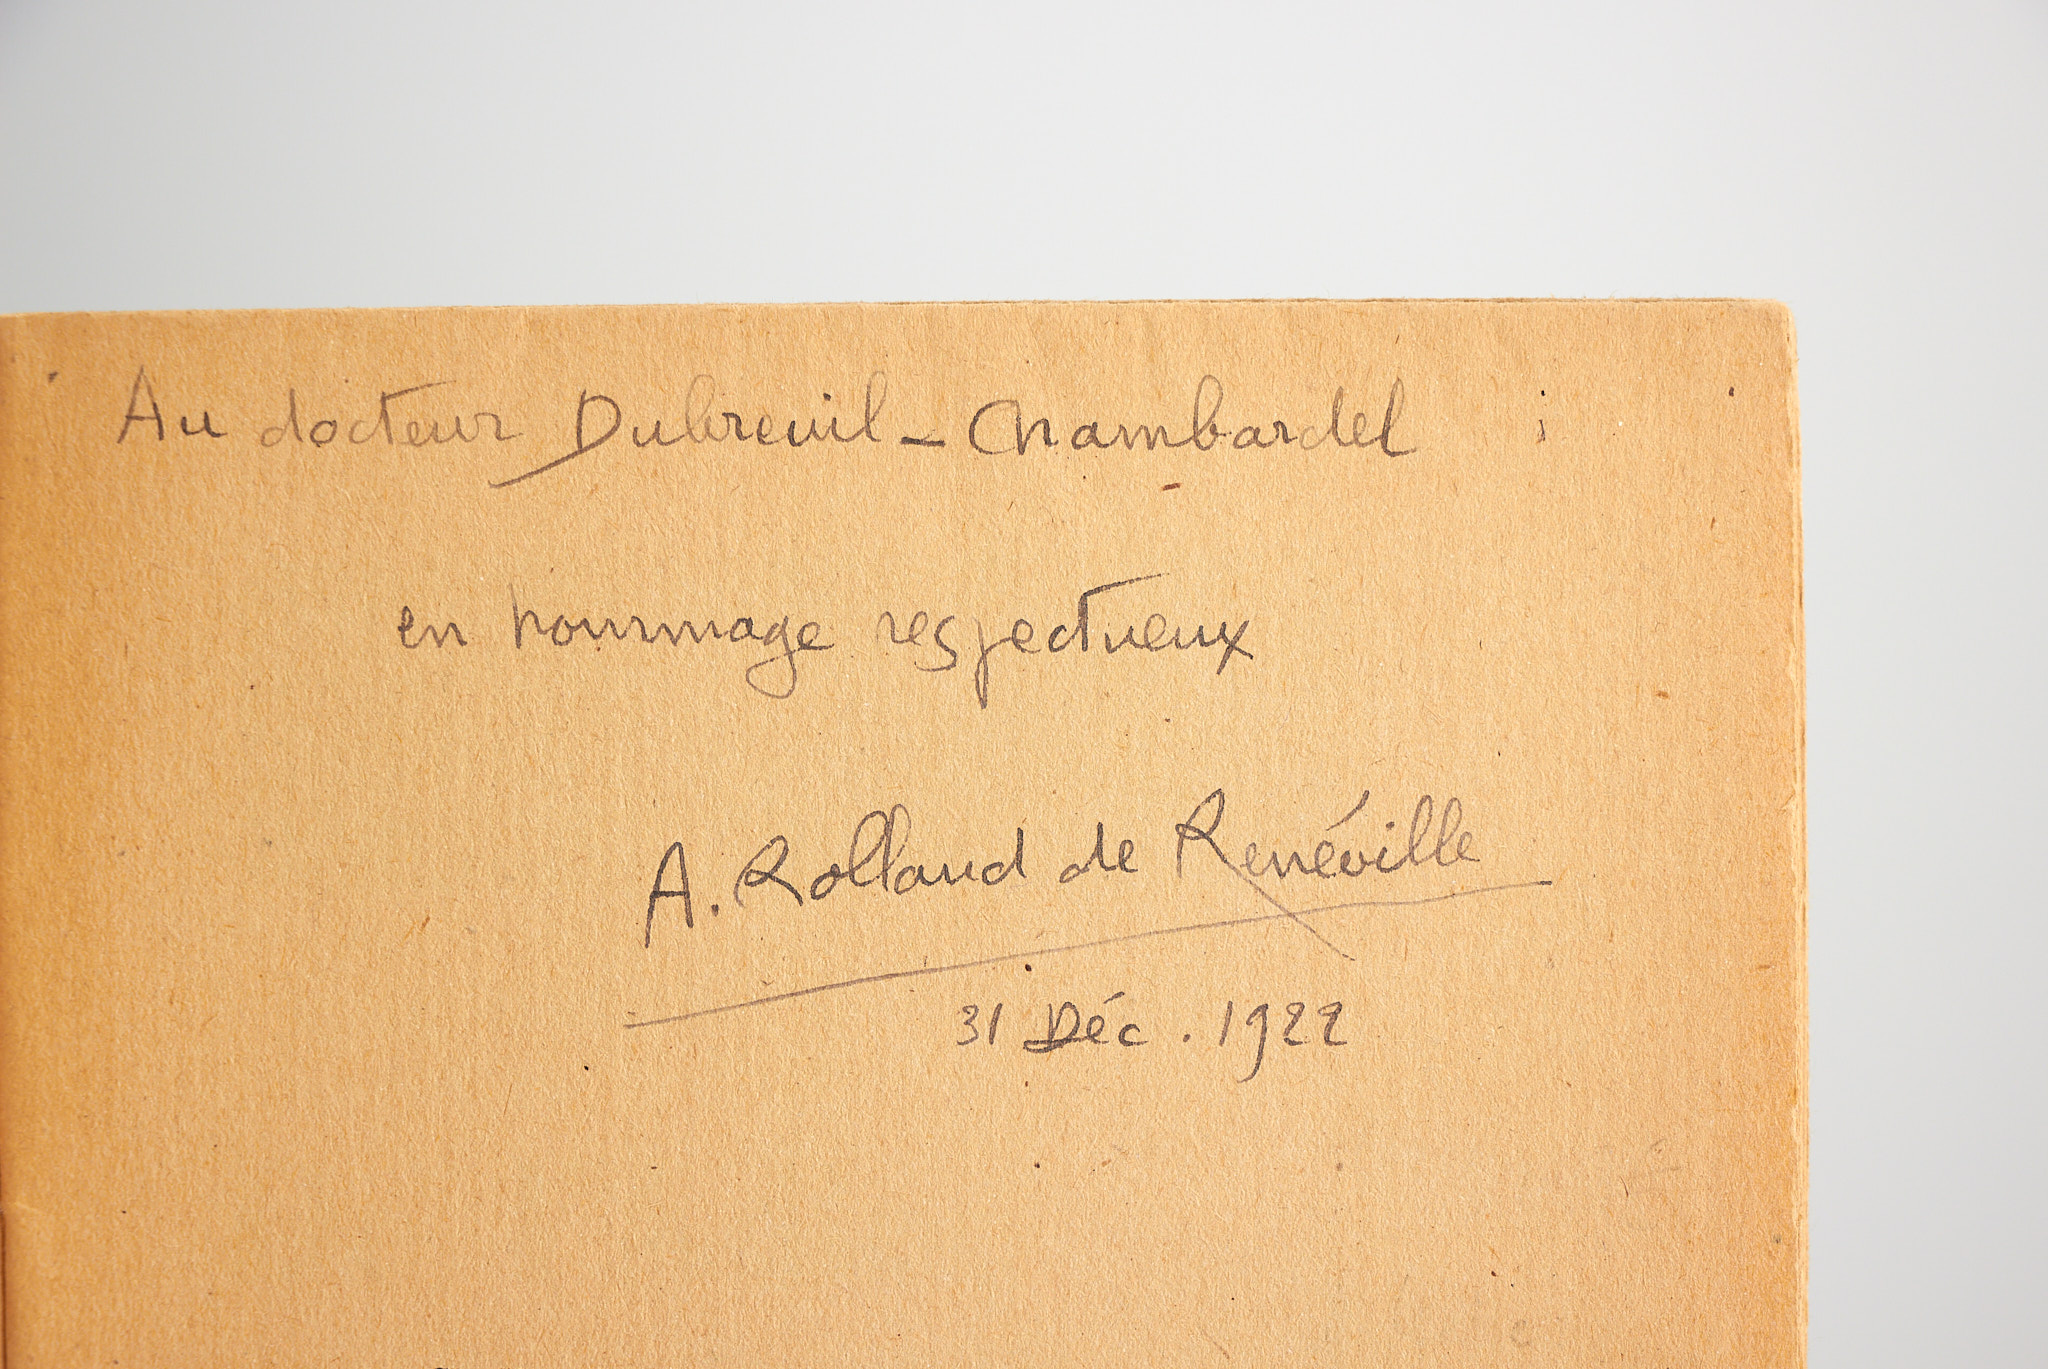 Au docteur Dubreuil-Chambardel
en hommage respectueux
A. Rolland de Renéville
31 Déc. 1922